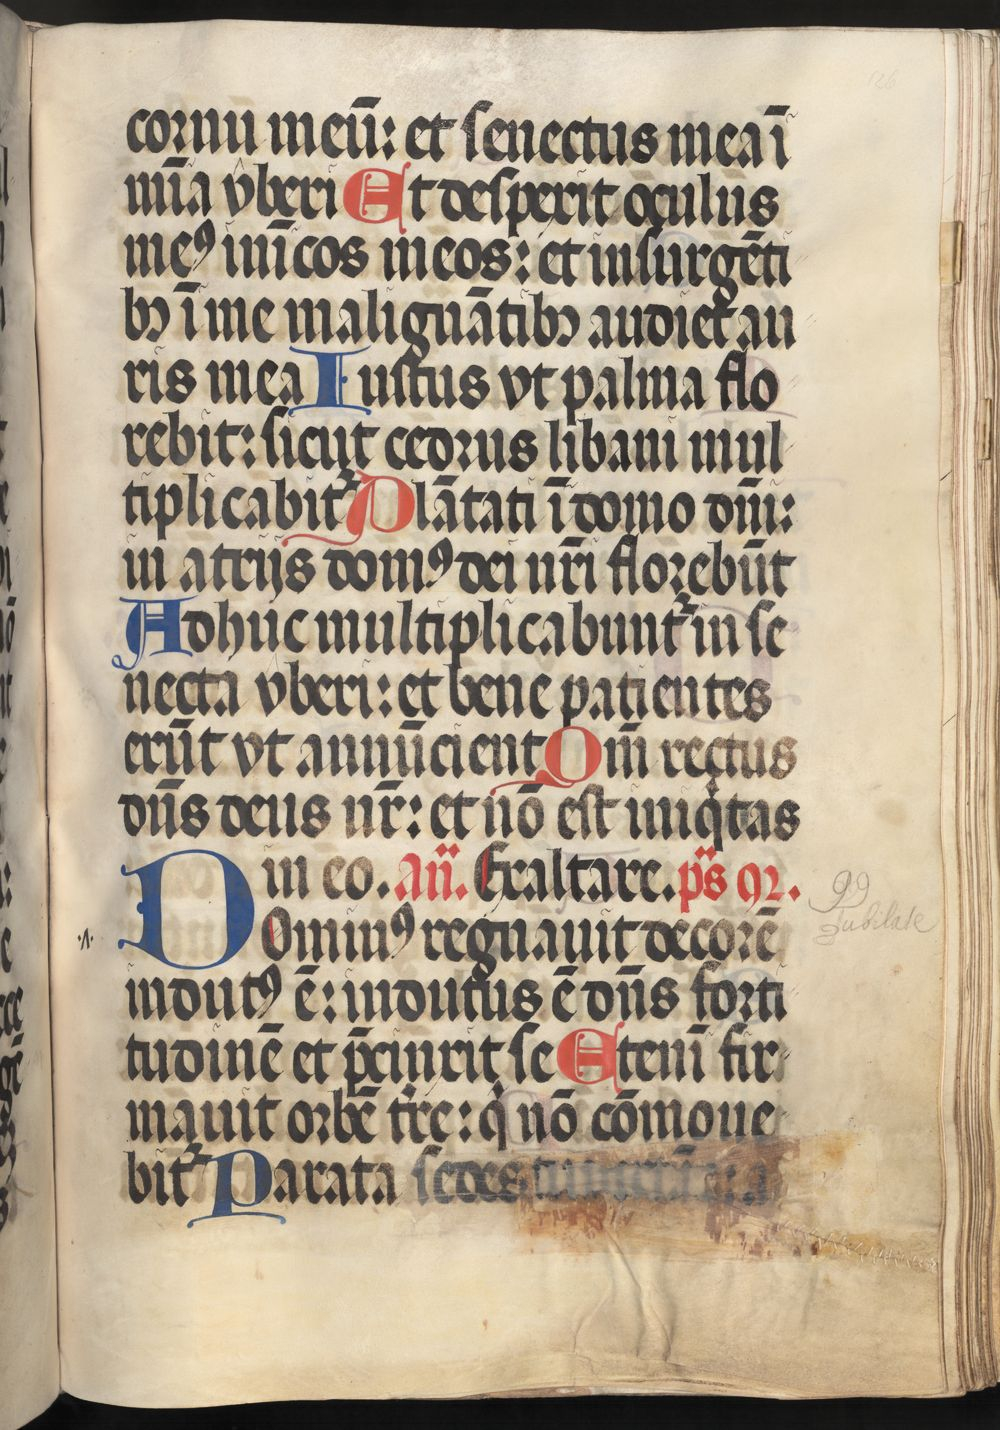 126
cornu meū: et senectus mea ī
mīa vberi Et desperit oculus
meꝰ inīcos meos: et insurgēti
bꝫ ī me malignātibꝫ audiet au
ris mea Iustus vt palma flo
rebit: sicut cedrus libani mul
tiplicabitᷣ Plātati ī domo dn̄i:
in atrijs domꝰ dei nr̄i florebūt
Adhuc multiplicabuntᷣ in se
necta vberi: et bene patientes
erūt vt annūcient Qm̄ rectus
dn̄s deus nr̄: et nō est iniqͥtas
in eo. an̄. Exaltare. ps 92.
99
Jubilate
Dominꝰ regnauit decorē
indutꝰ ē: indutus ē dn̄s forti
tudinē et p̄cinxit se Etenī fir
mauit orbē tr̄e: qͥ nō cōmoue
bitᷣ Parata sedes